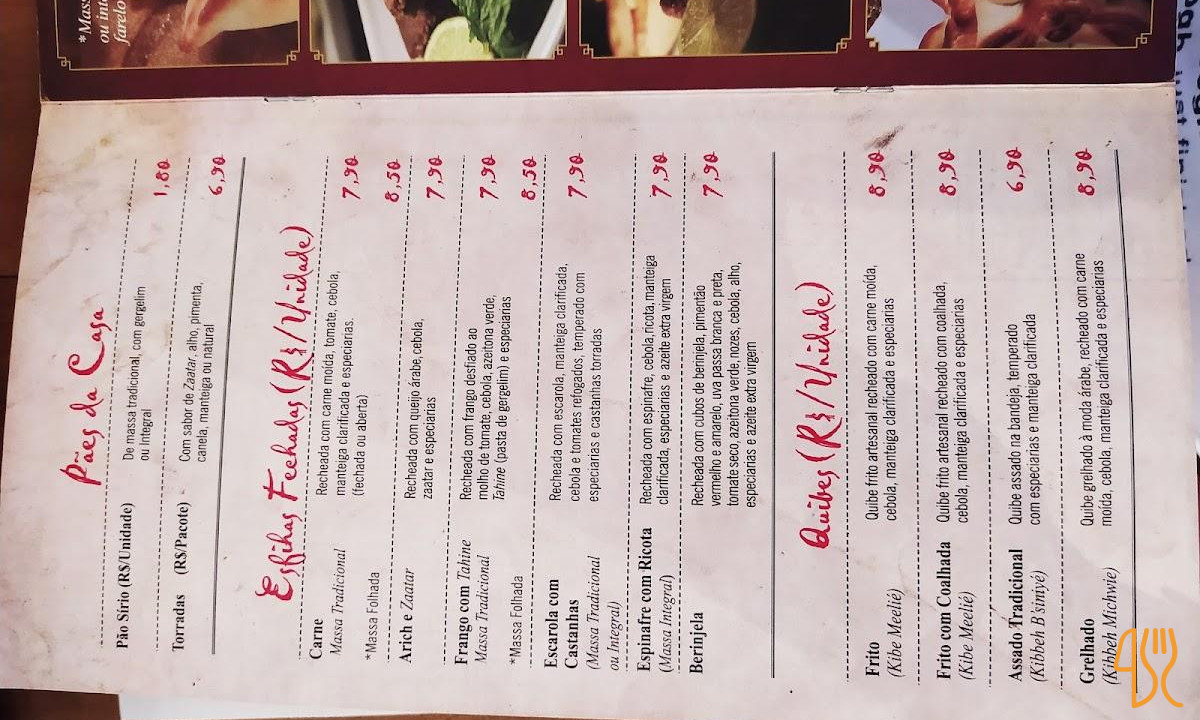 *Mass
ou inte
farelo
Pães da Casa
Pão Sírio (R$/Unidade) De massa tradicional, com gergelim 1,80
ou integral
Torradas (R$/Pacote) Com sabor de Zaatar, alho, pimenta, 6,90
canela, manteiga ou natural
Esfihas Fechadas (R$/Unidade)
Carne Recheada com carne moída, tomate, cebola, 7,90
Massa Tradicional manteiga clarificada e especiarias.
(fechada ou aberta)
*Massa Folhada 8,50
Arich e Zaatar Recheada com queijo árabe, cebola, 7,90
zaatar e especiarias
Frango com Tahine Recheada com frango desfiado ao 7,90
Massa Tradicional molho de tomate, cebola, azeitona verde,
Tahine (pasta de gergelim) e especiarias
*Massa Folhada 8,50
Escarola com Recheada com escarola, manteiga clarificada, 7,90
Castanhas cebola e tomates refogados, temperado com
(Massa Tradicional especiarias e castanhas torradas
ou Integral)
Espinafre com Ricota Recheada com espinafre, cebola, ricota, manteiga 7,90
(Massa Integral) clarificada, especiarias e azeite extra virgem
Berinjela Recheada com cubos de berinjela, pimentão 7,90
vermelho e amarelo, uva passa branca e preta,
tomate seco, azeitona verde, nozes, cebola, alho,
especiarias e azeite extra virgem
Quibes (R$/Unidade)
Frito Quibe frito artesanal recheado com carne moída, 8,90
(Kibe Meelié) cebola, manteiga clarificada e especiarias
Frito com Coalhada Quibe frito artesanal recheado com coalhada, 8,90
(Kibe Meelié) cebola, manteiga clarificada e especiarias
Assado Tradicional Quibe assado na bandeja, temperado 6,90
(Kibbeh B'siniyé) com especiarias e manteiga clarificada
Grelhado Quibe grelhado à moda árabe, recheado com carne 8,90
(Kibbeh Michwie) moída, cebola, manteiga clarificada e especiarias